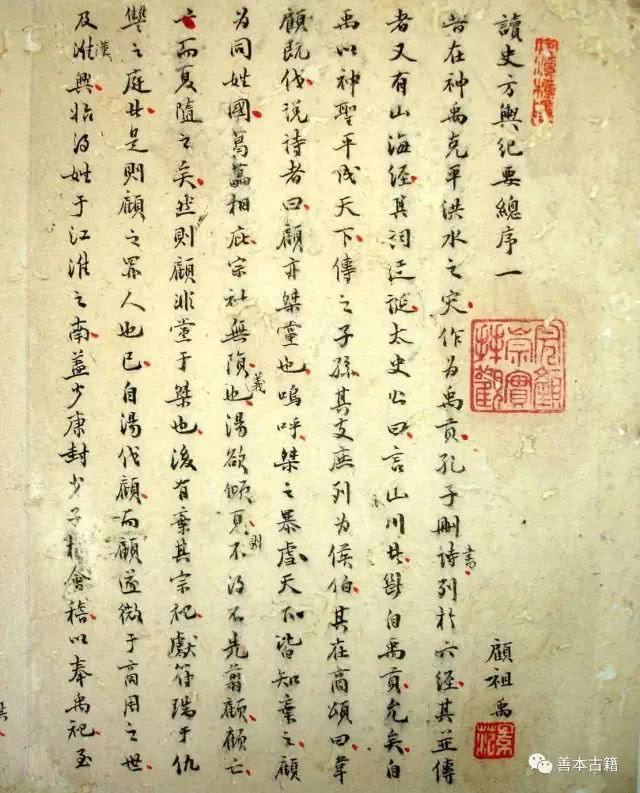 讀史方輿紀要總序一
顧祖禹
昔在神禹克平洪水之災作為禹貢孔子刪詩書列於六經其並傳
者又有山海經其詞迂誕太史公曰言山川者斷自禹貢允矣自
禹以神聖平成天下傳之子孫其支庶列為侯伯其在商頌曰韋
顧既伐說詩者曰顧亦桀黨也嗚呼桀之暴虐天下皆知棄之顧
為同姓國葛藟相庇宗社無隕義也湯欲傾夏則不得不先翦顧顧亡
而夏隨之矣然則顧非黨于桀也後有棄其宗祀獻符瑞于仇
讐之庭者是則顧之罪人也已自湯伐顧而顧遂微于商周之世
及漢興始得姓于江淮之南蓋少康封少子於會稽以奉禹祀至
善本古籍